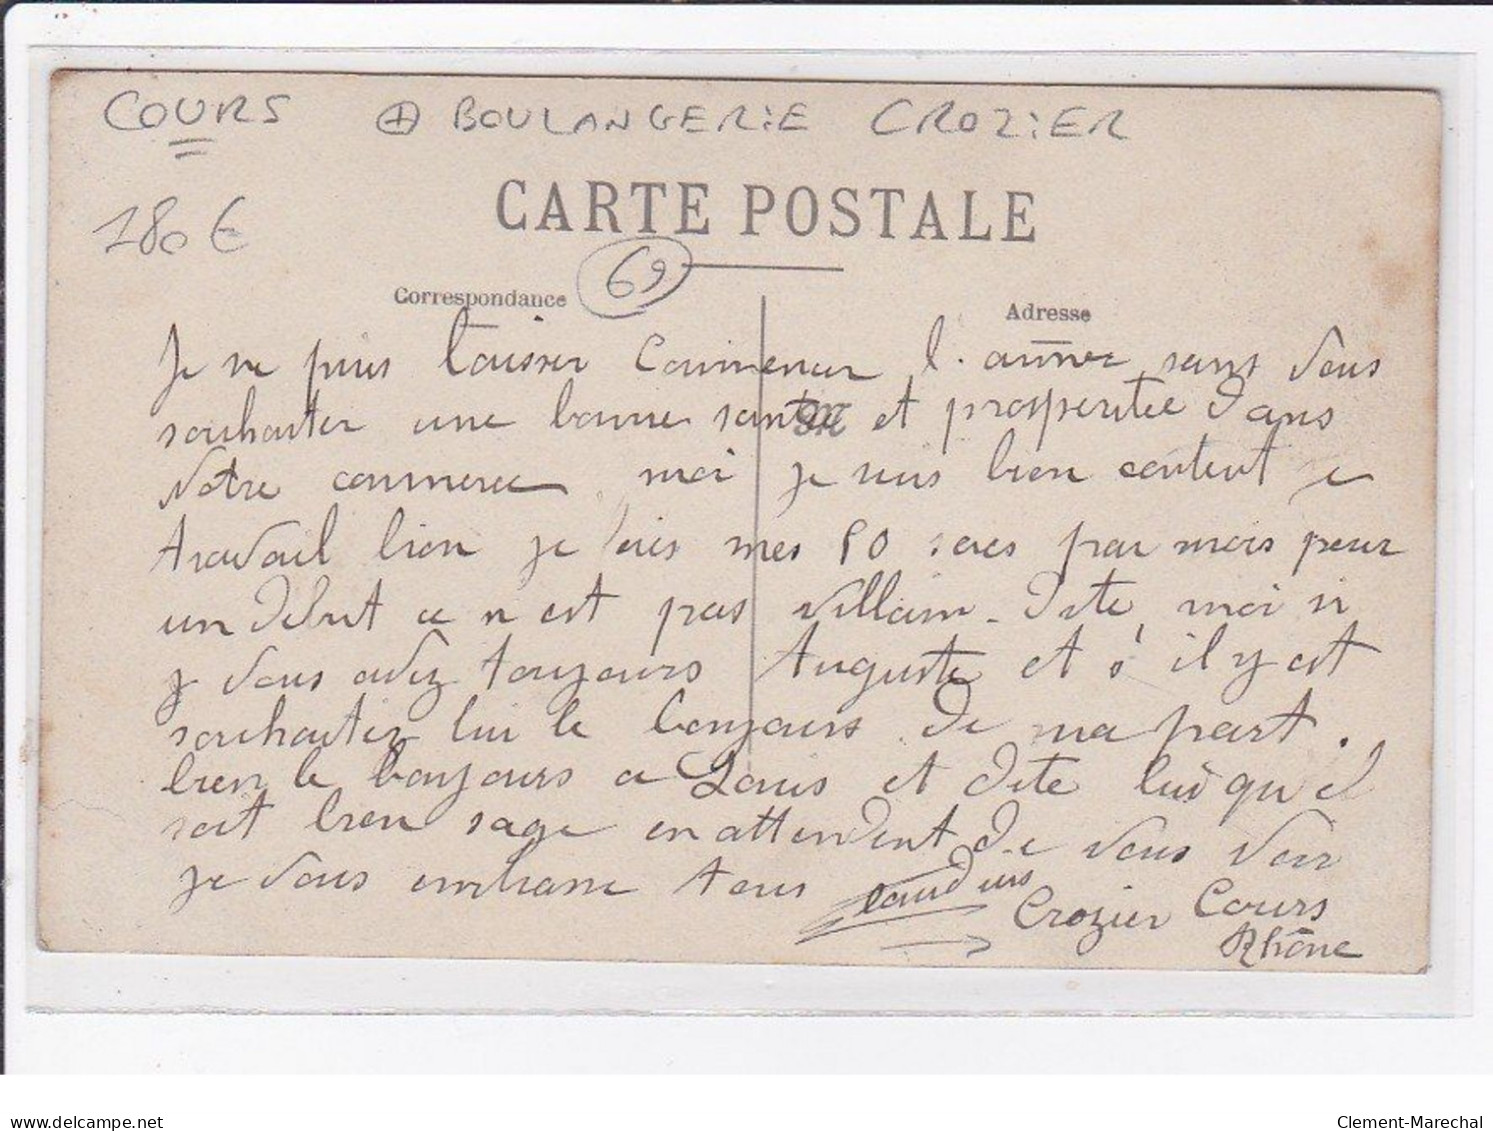 COURS ⊕ BOULANGERIE CROZIER
180 €
CARTE POSTALE
69
Correspondance
Adresse
Je ne puis laisser commencer l'année sans vous
souhaiter une bonne santé et prosperitée dans
votre commerce moi je suis bien content je
travail bien je fais mes 80 sacs par mois pour
un debut ce n est pas villain. Dite moi si
vous avez toujours Auguste et s' il y est
souhaitez lui le bonjours de ma part.
bien le bonjours a Louis et dite lui qu il
soit bien sage en attendent de vous voir
je vous embrasse tous
Crozier Cours
Rhône
delcampe.net
Clement-Marechal